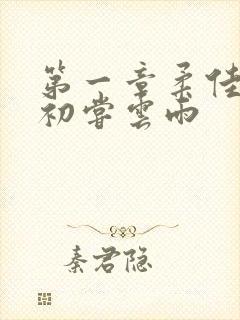 第一章柔佳
初尝雲雨
秦君隐